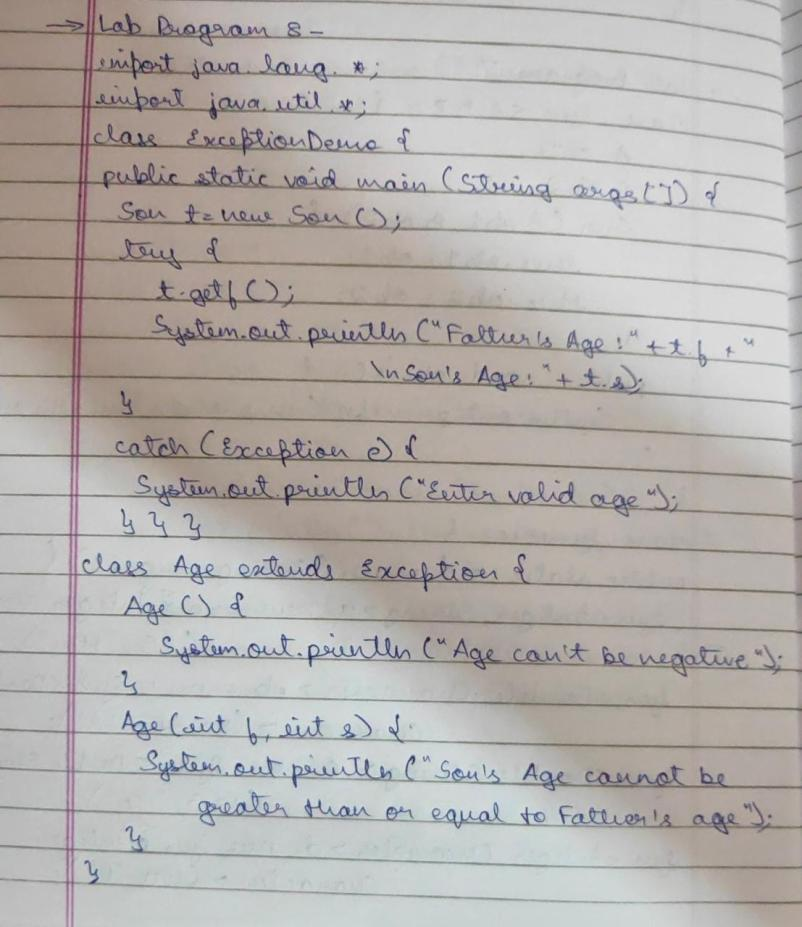 → Lab Program 8 -
import java.lang.*;
import java.util.*;
class ExceptionDemo {
public static void main (String args[]) {
Son t = new Son ();
try {
t.getf ();
System.out.println ("Father's Age :" + t.f + "
\n Son's Age: " + t.s);
}
catch (Exception e) {
System.out.println ("Enter valid age");
} } }
class Age extends Exception {
Age () {
System.out.println ("Age can't be negative");
}
Age (int f, int s) {
System.out.println ("Son's Age cannot be
greater than or equal to Father's age");
}
}